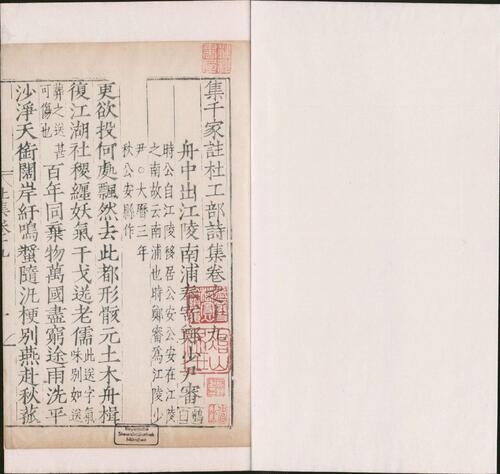 集千家註杜工部詩集卷之十九
舟中出江陵南浦奉寄鄭少尹審
時公自江陵移居公安公安在江陵
之南故云南浦也時鄭審為江陵少
尹○大曆三年
秋公安縣作
更欲投何處飄然去此都形骸元土木舟楫
復江湖社稷纏妖氣干戈送老儒此送字氣味別如送
葬之送甚可傷也百年同棄物萬國盡窮途雨洗平
沙淨天銜闊岸紆鳴螿隨汎梗別燕赴秋菰
Bayerische
Staatsbibliothek
München